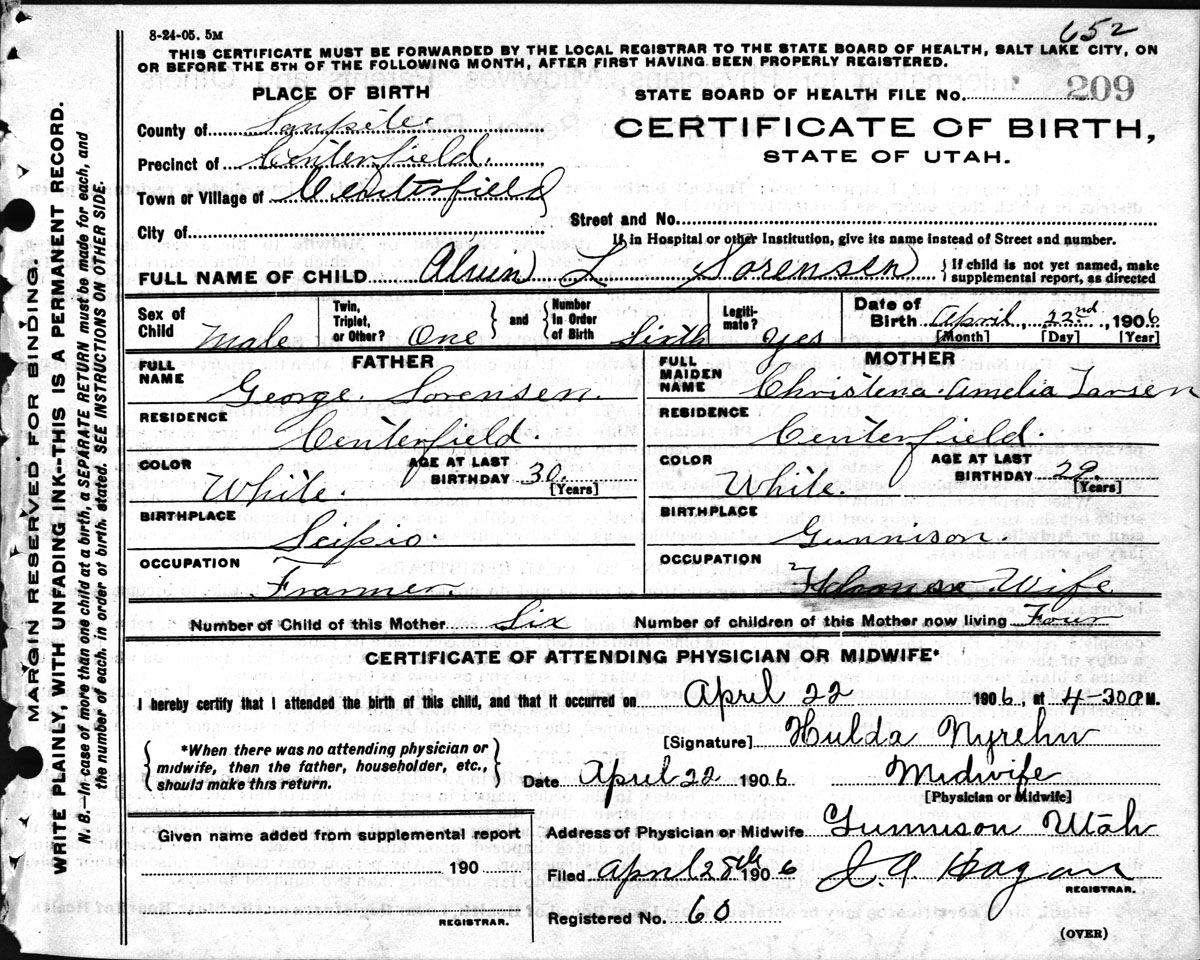 652
8-24-05. 5M
THIS CERTIFICATE MUST BE FORWARDED BY THE LOCAL REGISTRAR TO THE STATE BOARD OF HEALTH, SALT LAKE CITY, ON
OR BEFORE THE 5TH OF THE FOLLOWING MONTH, AFTER FIRST HAVING BEEN PROPERLY REGISTERED.
PLACE OF BIRTH
STATE BOARD OF HEALTH FILE No. 209
County of Sanpete.
CERTIFICATE OF BIRTH,
STATE OF UTAH.
Precinct of Centerfield.
Town or Village of Centerfield
Street and No.
City of
If in Hospital or other Institution, give its name instead of Street and number.
FULL NAME OF CHILD Alvin L Sorensen { If child is not yet named, make
supplemental report, as directed
Sex of Child Male
Twin, Triplet, or Other? One } and { Number In Order of Birth Sixth
Legiti- mate? Yes
Date of Birth April 22nd, 1906
[Month] [Day] [Year]
FATHER
FULL NAME George Sorensen.
RESIDENCE Centerfield.
COLOR White.
AGE AT LAST BIRTHDAY 30.
[Years]
BIRTHPLACE Scipio.
OCCUPATION Framer.
MOTHER
FULL MAIDEN NAME Christena Amelia Larsen
RESIDENCE Centerfield.
COLOR White.
AGE AT LAST BIRTHDAY 29.
[Years]
BIRTHPLACE Gunnison.
OCCUPATION Wife
Number of Child of this Mother Six
Number of children of this Mother now living Four
CERTIFICATE OF ATTENDING PHYSICIAN OR MIDWIFE*
I hereby certify that I attended the birth of this child, and that it occurred on April 22 1906, at 4-30 a M.
{ *When there was no attending physician or
midwife, then the father, householder, etc.,
should make this return. }
[Signature] Hulda Nyrehn
Date April 22 1906
Midwife
[Physician or Midwife]
Given name added from supplemental report
190
REGISTRAR.
Address of Physician or Midwife Gunnison Utah
Filed April 28th 1906 Hagan
REGISTRAR.
Registered No. 60
(OVER)
MARGIN RESERVED FOR BINDING.
WRITE PLAINLY, WITH UNFADING INK--THIS IS A PERMANENT RECORD.
N. B.—In case of more than one child at a birth, a SEPARATE RETURN must be made for each, and
the number of each, in order of birth, stated. SEE INSTRUCTIONS ON OTHER SIDE.